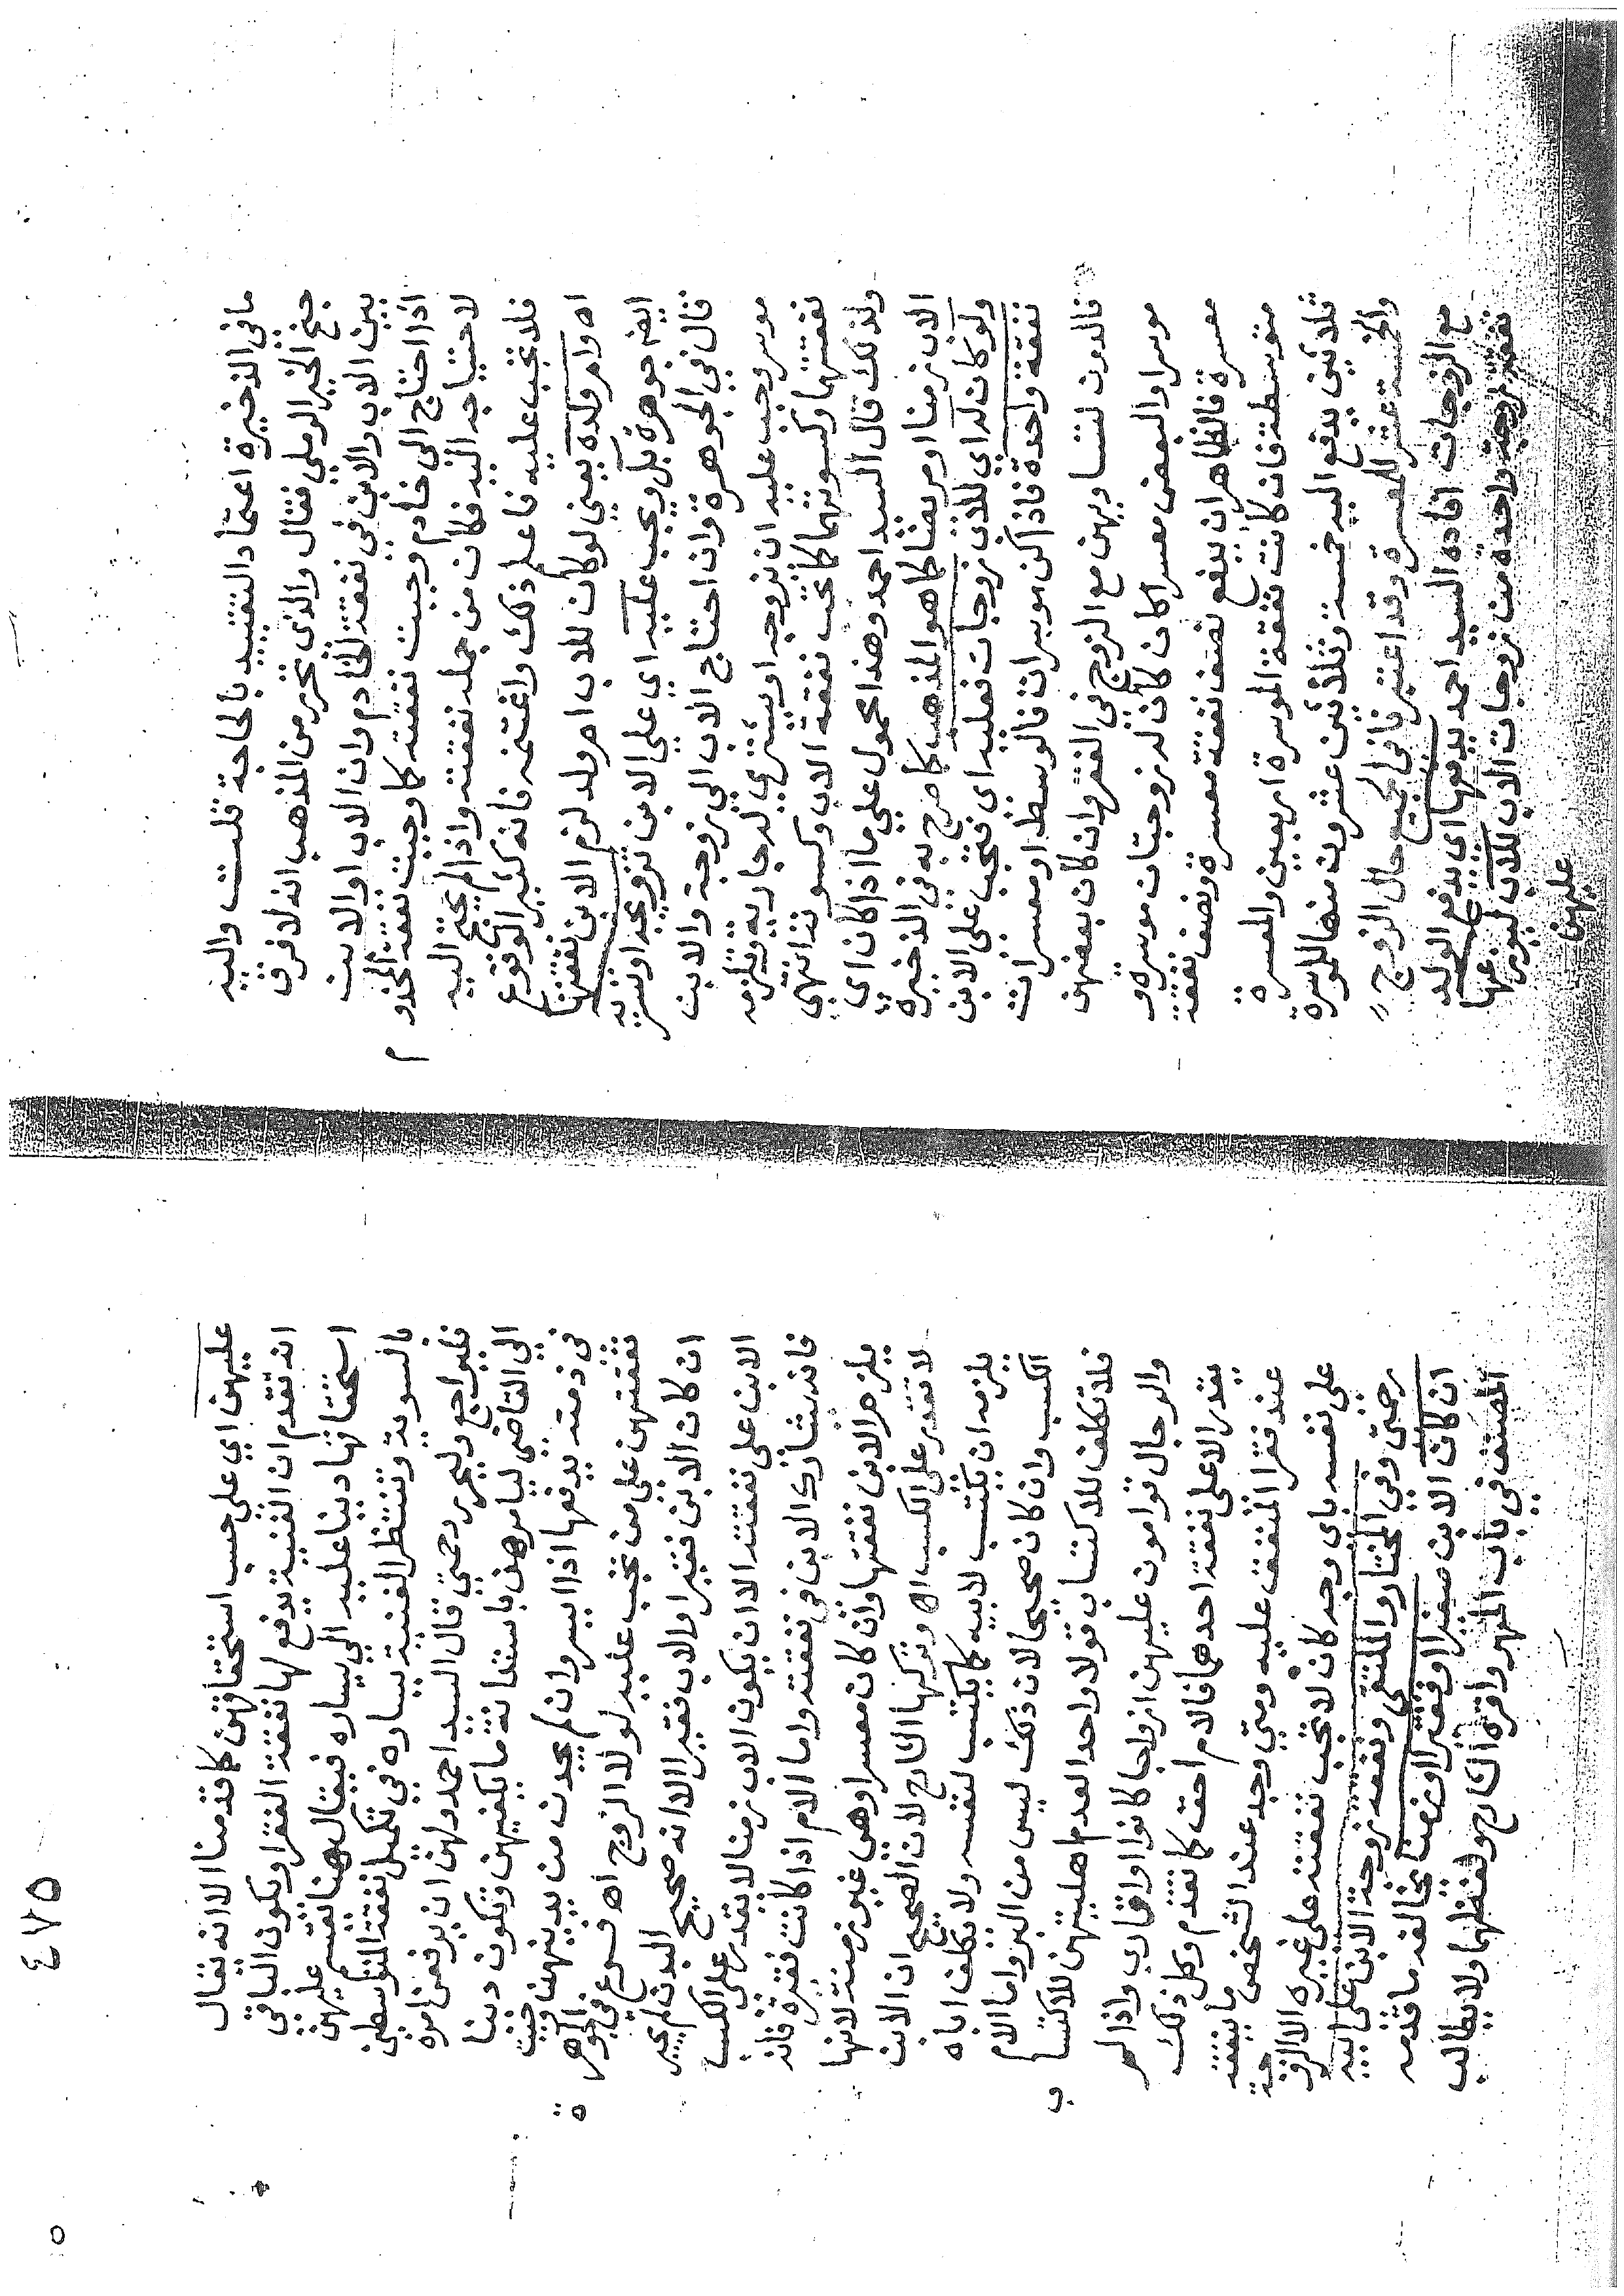 ما في الذخيرة اعتماد التقييد بالحاجة قلت واليه
جنح الخير الرملي فقال والذي تحرر من المذهب انه لا فرق
بين الاب والابن في نفقة الخادم وان الاب او الابن
اذا احتاج الى خادم وجبت نفقته كما وجبت نفقة المخدوم
لاحتياجه اليه فكان من جملة نفقته واذا لم يحتج اليه
فلا تجب عليه فاعلم ذلك واغتنمه فانه كثير الوقوع
اه وام ولده يعني لو كان للاب ام ولد لزم الابن نفقتها
ايضا جوهرة بل ويجب عليه اي علي الابن تزويجه او تسريه
قال في الجوهرة وان احتاج الاب الي زوجة والابن
موسر وجب عليه ان يزوجه او يشتري له جارية ويلزمه
نفقتها وكسوتهما كما تجب نفقة الاب وكسوته انتهي
ولذلك قال السيد احمد وهذا محمول علي ما اذا كان اي
الاب زمنا او مريضا كما هو المذهب كما صرح به في الذخيرة
ولو كان له اي للاب زوجات فعليه اي فتجب على الابن
نفقة واحدة فاذا كن موسرات فالوسط او معسرات
فالدون لتساويهن مع الزوج في الفقر وان كان بعضهن
موسرا والبعض معسرا كان كان له زوجتان موسرة و
معسرة فالظاهر ان يدفع نصف نفقة معسرة ونصف نفقة
متوسطة فان كانت نفقة الموسرة اربعين والمعسرة
ثلاثين يدفع اليه خمسة وثلاثين عشرون منها للموسرة
والخمسة عشر للمعسرة وقد اعتبرنا في الجميع حال الزوج
مع الزوجات افاده السيد احمد يدفعها اي يدفع الولد
نفقة زوجة واحدة من زوجات الاب للاب ليوزعها
عليهن
٤٧٥
عليهن اي على حسب استحقاقهن كما قدمنا الا انه يقال
انه تقدم ان الغنية يدفع لها نفقة الفقرا ويكون الباقي
استحقاقها دينا عليه الي يساره فيقال هنا تقسم عليهن
بالسوية وتنتظر الغنية يساره في تكميل نفقة المتوسطين
فليراجع وليحرر رحمتي قال السيد احمد ولهن ان يرفعن امره
الي القاضي ليامرهن باستدانة ما يكفيهن وتكون دينا
في ذمته يدفعها اذا ايسر وان لم يجدن من يدينهن وجبت
نفقتهن علي من تجب عليه لولا الزوج اه فروع في الجوهرة
ان كان الابن فقيرا والاب فقيرا الا انه صحيح البدن لم يجبر
الابن على نفقته الا ان يكون الاب زمنا لا يقدر علي الكسب
فانه يشارك الابن في نفقته واما الام اذا كانت فقيرة فانه
يلزم الابن نفقتها وان كان معسرا وهي غير زمنة لانها
لا تقدر على الكسب اه وتركها الشارح لان الصحيح ان الابن
يلزمه ان يكتسب لابيه كما يكتسب لنفسه ولا يكلف اباه
الكسب وان كان صحيحا لان ذلك ليس من البر واما الام
فلا تكلف للاكتساب قولا واحدا لعدم اهليتهن للاكتساب
والرجال قوامون عليهن ازواجا كانوا او اقارب واذا لم
يقدر الا على نفقة احدهما فالام احق كما تقدم وكل ذلك
عند فقر المنفق عليه ومتي وجد عند الشخص ما ينفقه
علي نفسه باي وجه كان لا تجب نفقته على غيره الا الزوجة
رحمتي وفي المختار والملتقي ونفقة زوجة الابن على ابيه
ان كان الابن صغيرا فقيرا او زمنا يخالفه ما قدمه
المصنف في باب المهر واقره الشارح ولفظها ولا يطالب